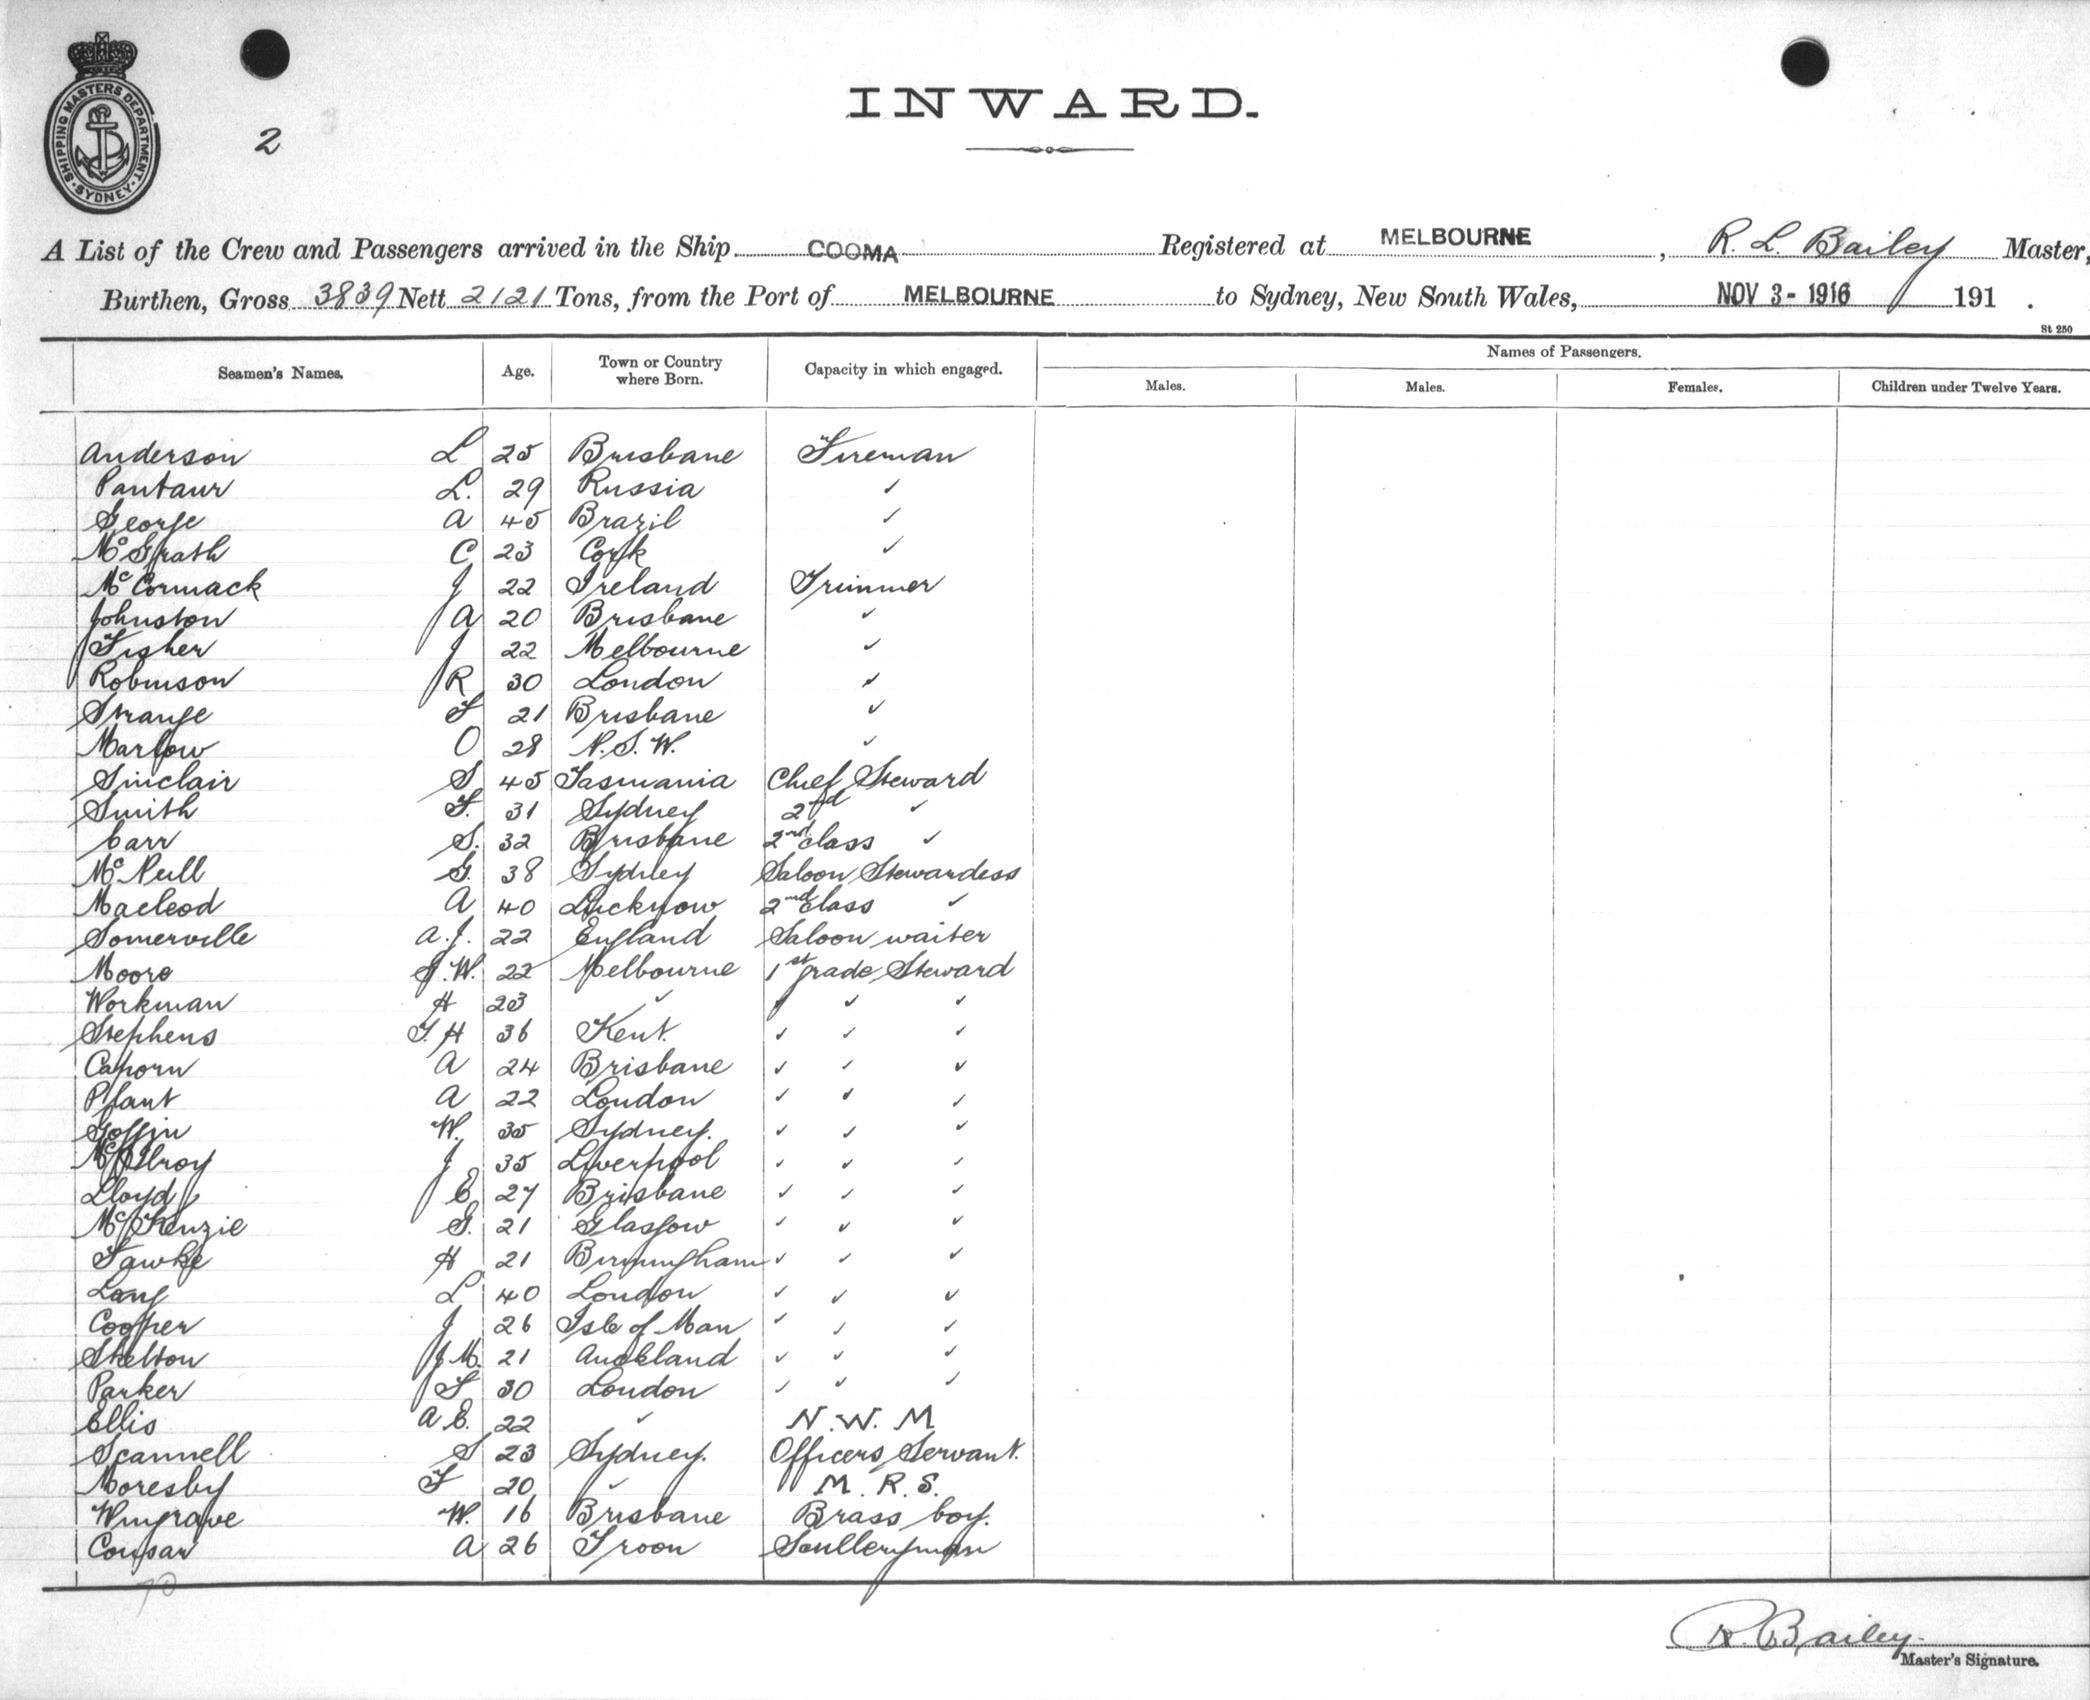 SHIPPING MASTERS DEPARTMENT. SYDNEY.
2
INWARD.
A List of the Crew and Passengers arrived in the Ship COOMA Registered at MELBOURNE, R. L. Bailey Master,
Burthen, Gross 3839 Nett 2121 Tons, from the Port of MELBOURNE to Sydney, New South Wales, NOV 3 - 1916 191 .
St 250
Seamen's Names. Age. Town or Country where Born. Capacity in which engaged. Names of Passengers.
Males. Males. Females. Children under Twelve Years.
Anderson L 25 Brisbane Fireman
Pantaur L. 29 Russia ✓
George A 45 Brazil ✓
McGrath C 23 Cork ✓
McCormack J 22 Ireland Trimmer
Johnston A 20 Brisbane ✓
Fisher J 22 Melbourne ✓
Robinson R 30 London ✓
Strange F 21 Brisbane ✓
Marlow O 28 N.S.W. ✓
Sinclair S 45 Tasmania Chief Steward
Smith F. 31 Sydney 2nd ✓
Carr S. 32 Brisbane 2nd class ✓
McNeill G. 38 Sydney Saloon Stewardess
Macleod A 40 Lucknow 2nd class ✓
Somerville A.J. 22 England Saloon waiter
Moore J.W. 22 Melbourne 1st grade Steward
Workman H 23 ✓ ✓ ✓ ✓
Stephens T.H 36 Kent. ✓ ✓ ✓
Caporn A 24 Brisbane ✓ ✓ ✓
Plant A 22 London ✓ ✓ ✓
Goffin W. 35 Sydney. ✓ ✓ ✓
McIlroy J 35 Liverpool ✓ ✓ ✓
Lloyd E 27 Brisbane ✓ ✓ ✓
McKenzie G. 21 Glasgow ✓ ✓ ✓
Fawke H 21 Birmingham ✓ ✓ ✓
Lang L 40 London ✓ ✓ ✓
Cooper J 26 Isle of Man ✓ ✓ ✓
Skelton J.M. 21 Auckland ✓ ✓ ✓
Parker F 30 London ✓ ✓ ✓
Ellis A E. 22 ✓ N.W.M
Scannell S 23 Sydney. Officers Servant.
Moresby F 20 ✓ M.R.S.
Wingrave W. 16 Brisbane Brass boy.
Cousar A 26 Troon Sculleryman
70
R. Bailey
Master's Signature.